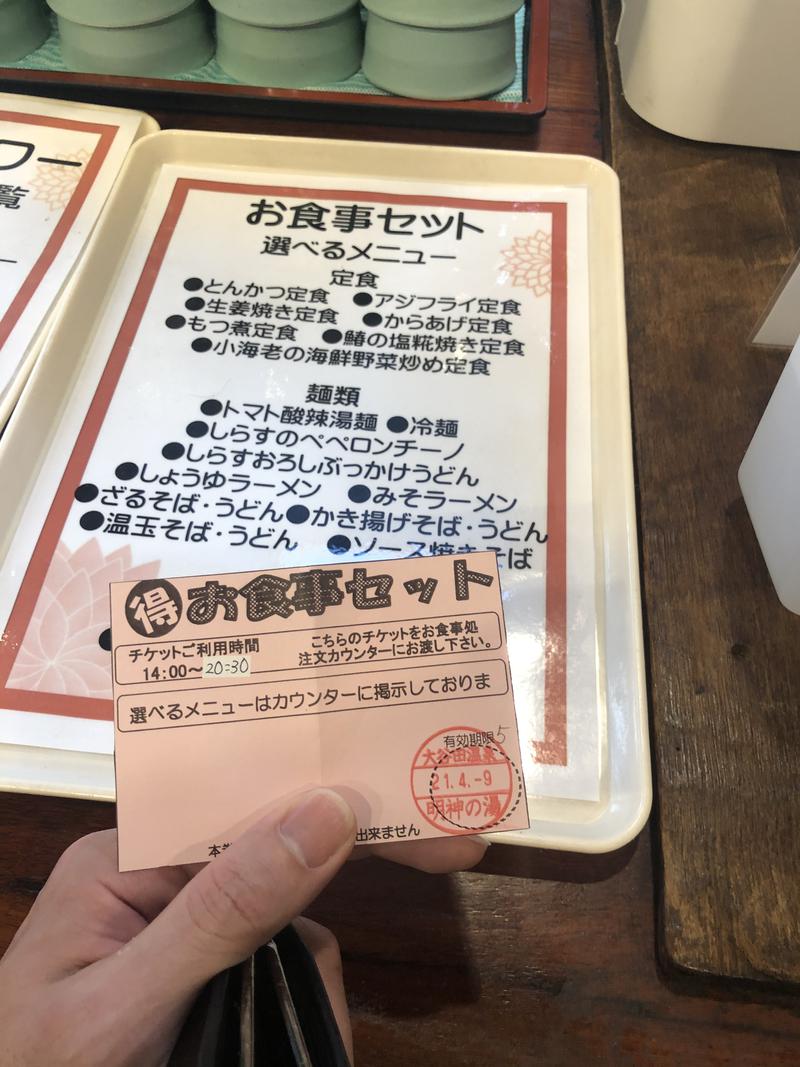 ワー
覧
お食事セット
選べるメニュー
定食
●とんかつ定食 ●アジフライ定食
●生姜焼き定食 ●からあげ定食
●もつ煮定食 ●鰆の塩糀焼き定食
●小海老の海鮮野菜炒め定食
麺類
●トマト酸辣湯麺 ●冷麺
●しらすのペペロンチーノ
●しらすおろしぶっかけうどん
●しょうゆラーメン ●みそラーメン
●ざるそば・うどん●かき揚げそば・うどん
●温玉そば・うどん ●ソース焼きそば
得 お食事セット
チケットご利用時間
14:00～20:30
こちらのチケットをお食事処
注文カウンターにお渡し下さい。
選べるメニューはカウンターに掲示しておりま
有効期限5
大谷田温泉
21.4.-9
明神の湯
本 出来ません